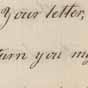 Your letter,
turn you my